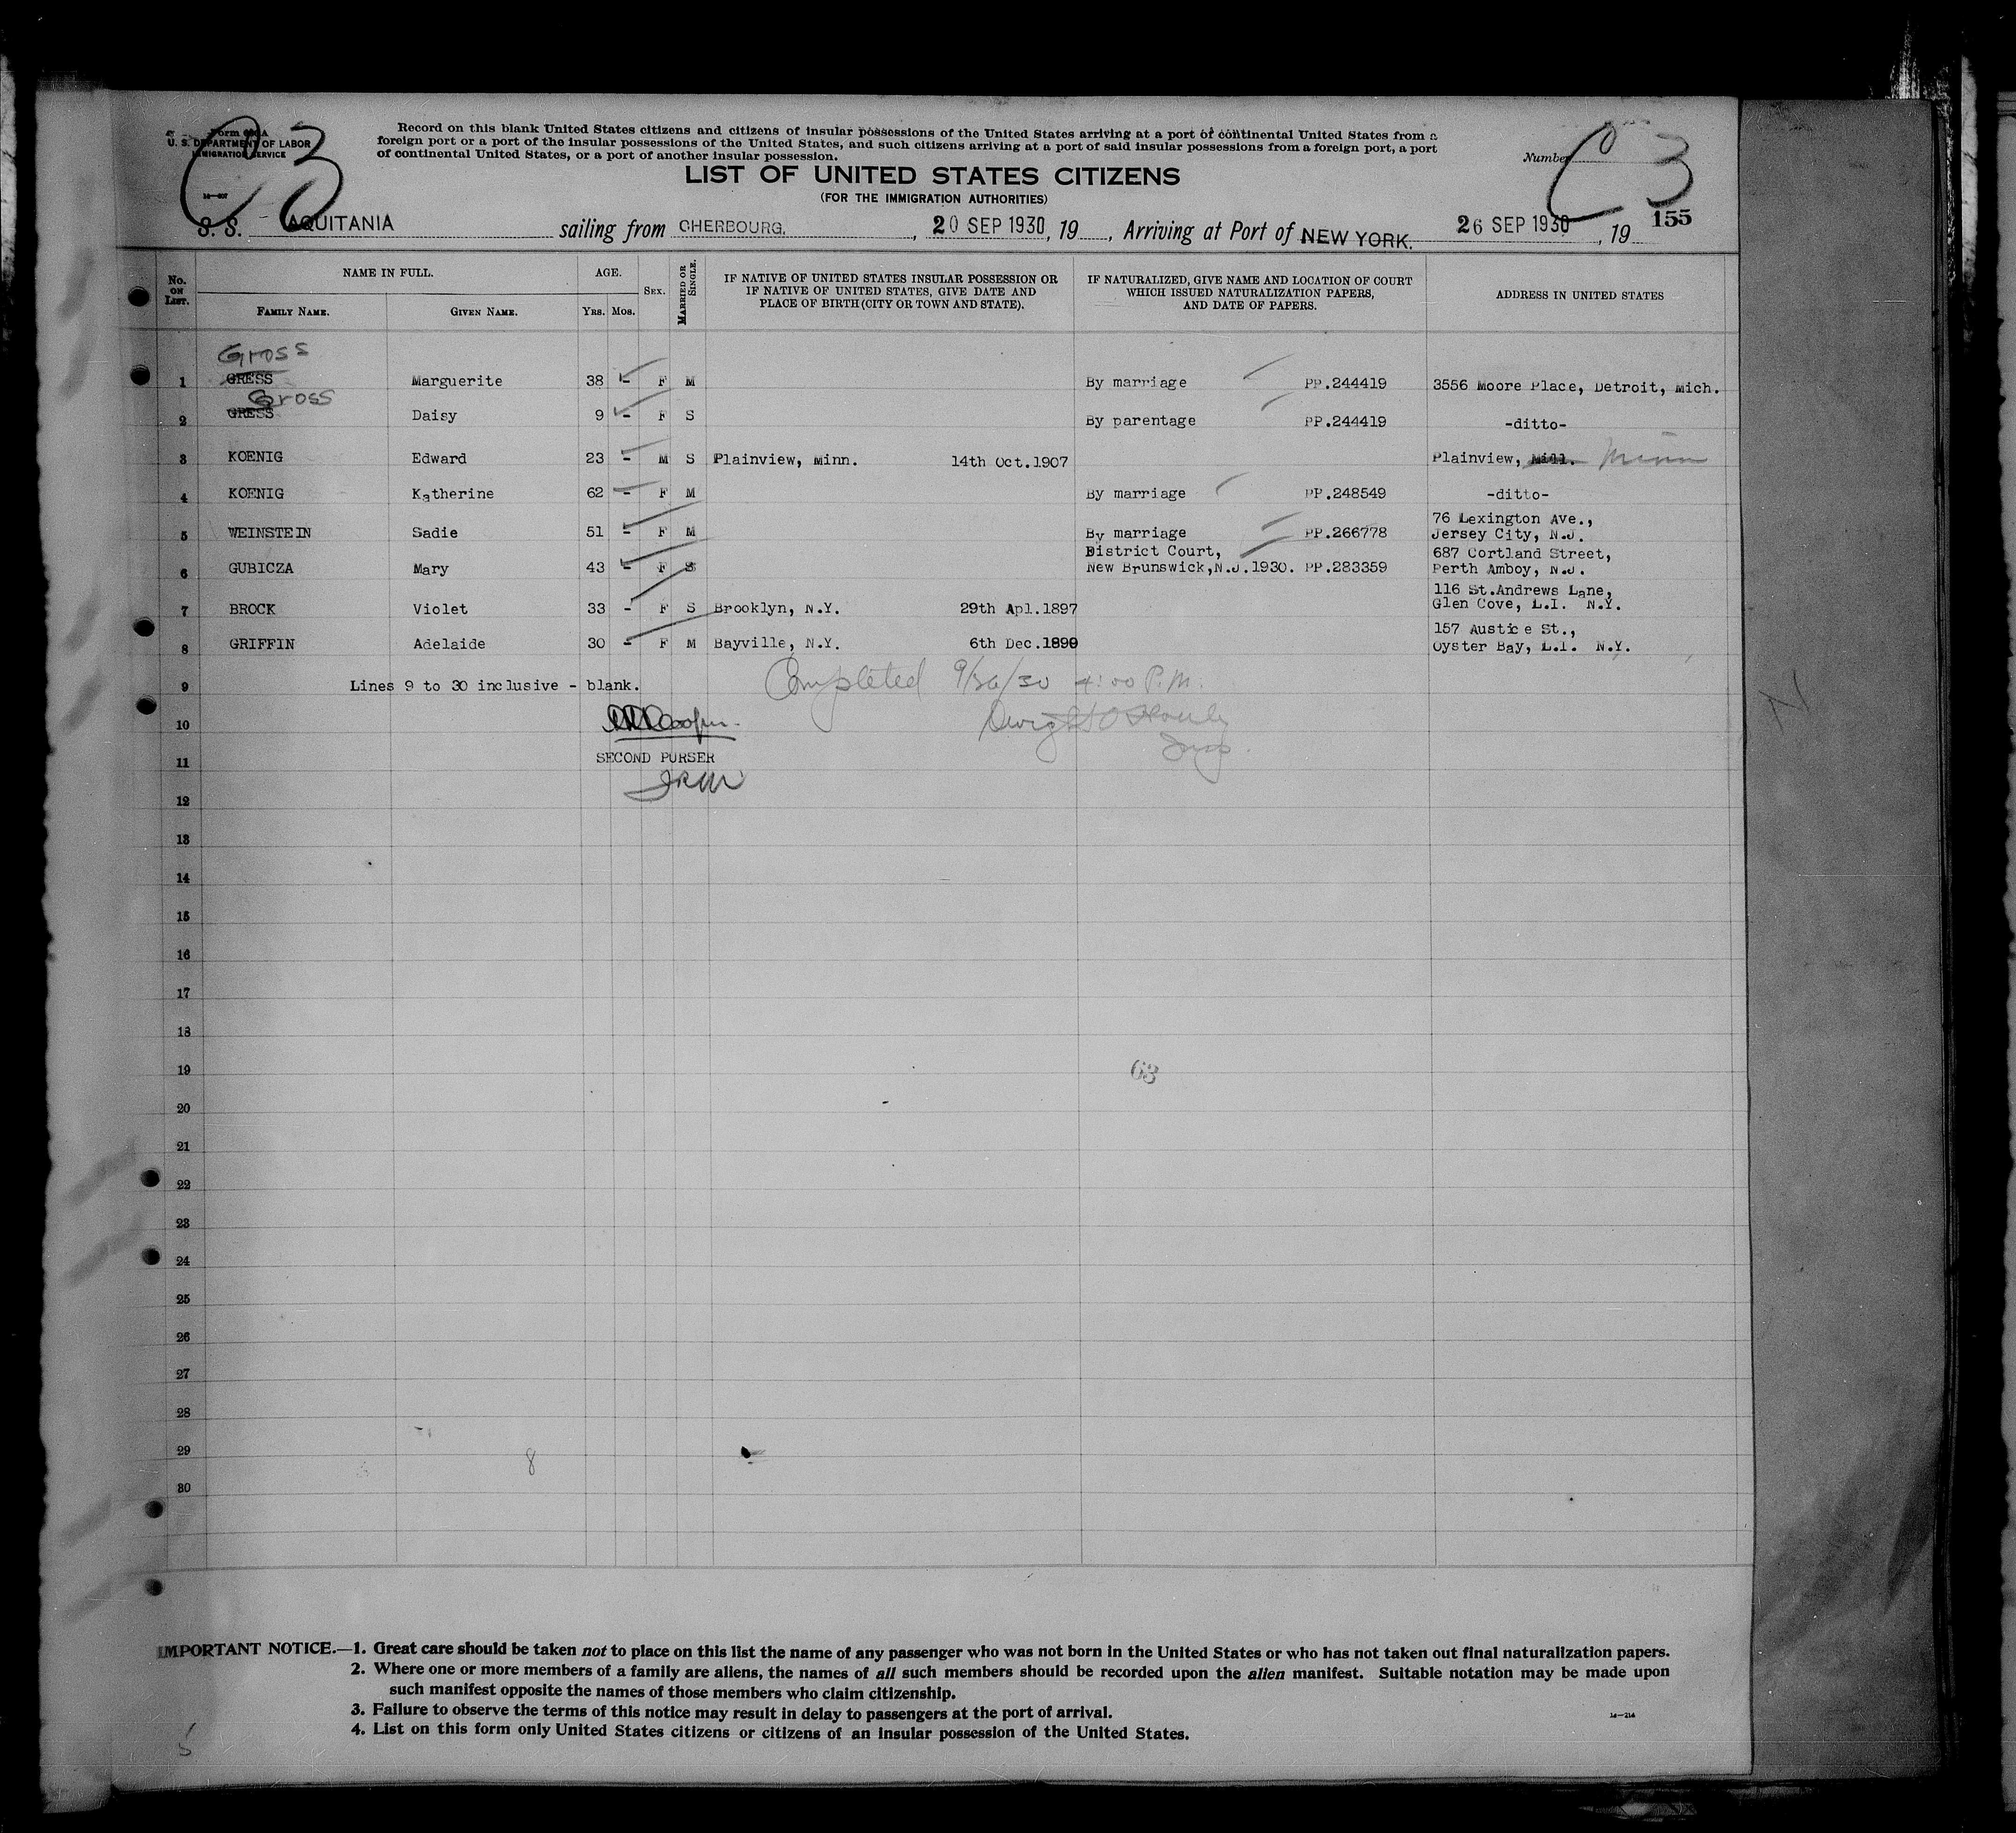 Form 630A
U. S. DEPARTMENT OF LABOR
IMMIGRATION SERVICE
C 3
Record on this blank United States citizens and citizens of insular possessions of the United States arriving at a port of continental United States from a
foreign port or a port of the insular possessions of the United States, and such citizens arriving at a port of said insular possessions from a foreign port, a port
of continental United States, or a port of another insular possession.
Number C 3
LIST OF UNITED STATES CITIZENS
(FOR THE IMMIGRATION AUTHORITIES)
155
S. S. AQUITANIA sailing from CHERBOURG. , 20 SEP 1930, 19 , Arriving at Port of NEW YORK. 26 SEP 1930 , 19
No. ON LIST. NAME IN FULL. AGE. SEX. MARRIED OR SINGLE. IF NATIVE OF UNITED STATES INSULAR POSSESSION OR IF NATIVE OF UNITED STATES, GIVE DATE AND PLACE OF BIRTH (CITY OR TOWN AND STATE). IF NATURALIZED, GIVE NAME AND LOCATION OF COURT WHICH ISSUED NATURALIZATION PAPERS, AND DATE OF PAPERS. ADDRESS IN UNITED STATES
FAMILY NAME. GIVEN NAME. YRS. MOS.
Gross
1 GRESS Marguerite 38 - F M By marriage PP.244419 3556 Moore Place, Detroit, Mich.
Gross
2 GRESS Daisy 9 - F S By parentage PP.244419 -ditto-
3 KOENIG Edward 23 - M S Plainview, Minn. 14th Oct.1907 Plainview, Mill. Minn
4 KOENIG Katherine 62 - F M By marriage PP.248549 -ditto-
76 Lexington Ave.,
5 WEINSTEIN Sadie 51 - F M By marriage PP.266778 Jersey City, N.J.
District Court, 687 Cortland Street,
6 GUBICZA Mary 43 - F S New Brunswick,N.J.1930. PP.283359 Perth Amboy, N.J.
116 St.Andrews Lane,
7 BROCK Violet 33 - F S Brooklyn, N.Y. 29th Apl.1897 Glen Cove, L.I. N.Y.
157 Austice St.,
8 GRIFFIN Adelaide 30 - F M Bayville, N.Y. 6th Dec.1899 Oyster Bay, L.I. N.Y.
9 Lines 9 to 30 inclusive - blank. Completed 9/26/30 4:00 P.M.
10 Dwight O
11 SECOND PURSER Insp.
12
13
14
15
16
17
18
19 63
20
21
22
23
24
25
26
27
28
29 8
30
IMPORTANT NOTICE.—1. Great care should be taken not to place on this list the name of any passenger who was not born in the United States or who has not taken out final naturalization papers.
2. Where one or more members of a family are aliens, the names of all such members should be recorded upon the alien manifest. Suitable notation may be made upon
such manifest opposite the names of those members who claim citizenship.
3. Failure to observe the terms of this notice may result in delay to passengers at the port of arrival.
4. List on this form only United States citizens or citizens of an insular possession of the United States.
14—214
5